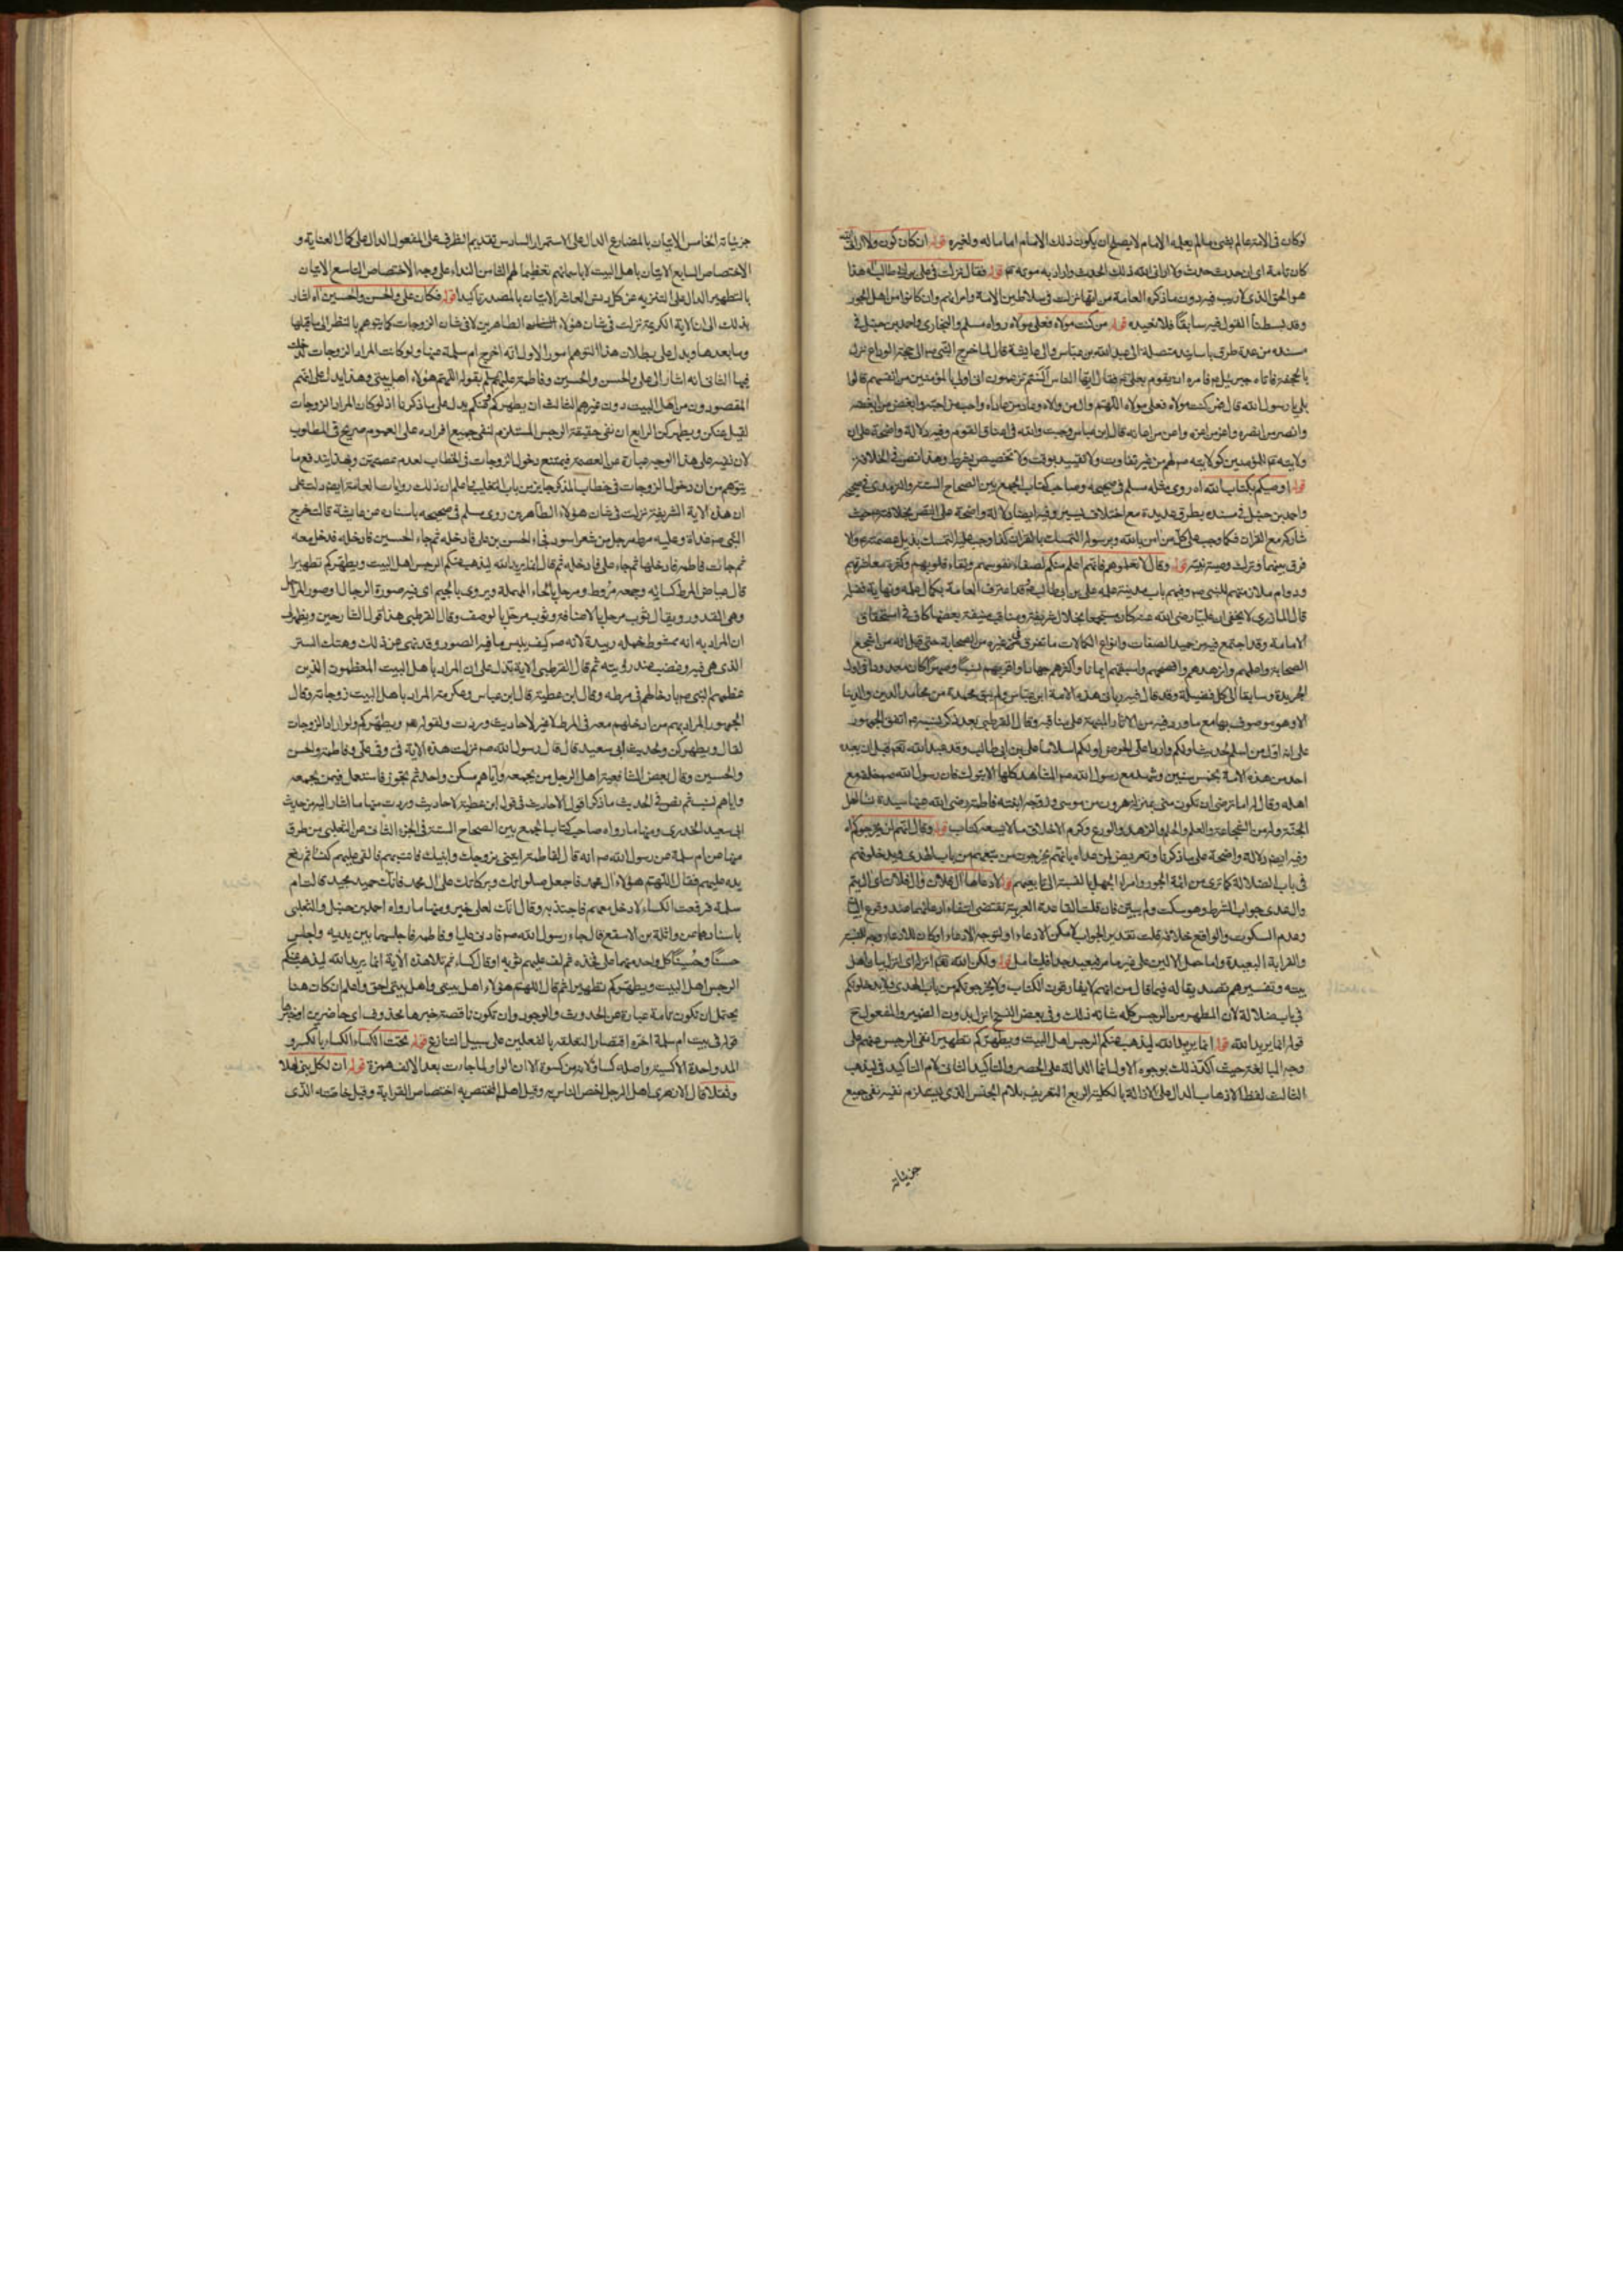 لو كان في الامة عالم يفتي بما لم يعلمه الامام لا يصلح ان يكون ذلك الامام اماما له ولغيره قوله ان كان كون ولا اراني الله
كان تامة اى ان حدث حدث ولا اراني الله ذلك الحدث واراد به موته قوله فقال نزلت في علي بن ابي طالب هذا
هو الحق الذي لا ريب فيه دون ما ذكره العامة من انها نزلت في سلاطين الامة وامرائهم وان كانوا من اهل الجور
وقد بسطنا القول فيه سابقا فلا نعيده قوله من كنت مولاه فعلي مولاه رواه مسلم والبخاري واحمد بن حنبل في
مسنده من عدة طرق باسانيد متصلة الى عبد الله بن عباس والى عايشة قال لما خرج النبي ص الى حجة الوداع نزل
بالجحفة فاتاه جبرئيل فامره ان يقوم بعلي فقال ايها الناس الستم تزعمون اني اولى بالمؤمنين من انفسهم قالوا
بلى يا رسول الله قال فمن كنت مولاه فعلي مولاه اللهم وال من والاه وعاد من عاداه واحب من احبه وابغض من ابغضه
وانصر من نصره واعز من اعزه واعن من اعانه قال ابن عباس وجبت والله في اعناق القوم وفيه دلالة واضحة على ان
ولايته للمؤمنين كولايته ص لهم من غير تفاوت ولا تقييد بوقت ولا تخصيص بشرط وهذا نص في الخلافة
قوله اوصيكم بكتاب الله اه روى مثله مسلم في صحيحه وصاحب كتاب الجمع بين الصحاح الستة والترمذي في صحيحه
واحمد بن حنبل في مسنده بطرق عديدة مع اختلاف يسير وفيه ايضا دلالة واضحة على النص بخلافته حيث
شاركه مع القران فكما وجب على كل من امن بالله وبرسوله التمسك بالقران كذا وجب عليه التمسك بذيل عصمته ولا
فرق بينهما قوله وقال لا تعلموهم فانهم اعلم منكم لصفاء نفوسهم ونقاء قلوبهم وكثرة معاشرتهم
ودوام ملازمتهم للنبي ص وفيهم باب مدينة علمه علي بن ابي طالب وقد اعترف العامة بكمال علمه ونهاية فضله
قال المازري لا يخفى ان عليا رضي الله عنه كان مستجمعا بخلال شريفة ومناقب منيفة بعضها كاف في استحقاق
الامامة وقد اجتمع فيه من حميد الصفات وانواع الكمالات ما تفرق في غيره من الصحابة حتى قيل انه من اشجع
الصحابة واعلمهم وازهدهم وافصحهم واسبقهم ايمانا واكثرهم جهادا واقربهم نسبا وصهرا كان معدودا في اول
الجريدة وسابقا الى كل فضيلة وقد قال فيه رباني هذه الامة ابن عباس ولم يبق محمدة من محامد الدين والدنيا
الا وهو موصوف بها مع ما ورد فيه من الاثار المنبهة على مناقبه وقال القرطبي بعد ذكر نسبه اتفق الجمهور
على انه اول من اسلم لحديث اولكم واردا على الحوض اولكم اسلاما علي بن ابي طالب وقد عبد الله تعم قبل ان يعبده
احد من هذه الامة بخمس سنين وشهد مع رسول الله ص المشاهد كلها الا تبوك فان رسول الله ص خلفه مع
اهله وقال له اما ترضى ان تكون مني بمنزلة هرون من موسى وزوجه ابنته فاطمة رضي الله عنها سيدة نساء اهل
الجنة وله من الشجاعة والعلم والحلم والزهد والورع وكرم الاخلاق ما لا يسعه كتاب قوله وقال انهم لن يخرجوكم اه
وفيه ايضا دلالة واضحة على ما ذكرنا وتعريض لمن عداه بانهم يخرجون من يتبعهم من باب الهدى ويدخلونهم
في باب الضلالة كما ترى من ائمة الجور وامراء الجهل بالنسبة الى تابعيهم قوله لادعاها ال فلان وال فلان اى ال تيم
وال عدي جواب الشرط وهو سكت ولم يبين فان قلت القاعدة العربية تقتضي انتفاء ادعائهما عند وقوع البيان
وعدم السكوت والواقع خلافه قلت تقدير الجواب لامكن الادعاء او لتوجه الادعاء او كان للادعاء وجه للنسبة
والقرابة البعيدة واما حمل الالين على غير ما مر فبعيد جدا فليتامل قوله ولكن الله تعم انزل اى انزل بيان اهل
بيته وتفسيرهم تصديقا له فيما قال من انهم لا يفارقون الكتاب ولا يخرجونكم من باب الهدى ولا يدخلونكم
في باب ضلالة لان المطهر من الرجس كله شانه ذلك وفي بعض النسخ انزل بدون الضمير والمفعول ح
قوله انما يريد الله قوله انما يريد الله ليذهب عنكم الرجس اهل البيت ويطهركم تطهيرا نفى الرجس عنهم على
وجه المبالغة حيث اكد ذلك بوجوه الاول انما الدالة على الحصر والتاكيد الثاني لام التاكيد في ليذهب
الثالث لفظ الاذهاب الدال على الازالة بالكلية الرابع التعريف بلام الجنس الذي يستلزم نفيه نفي جميع
جزئياته
جزئياته الخامس الاتيان بالمضارع الدال على الاستمرار السادس تقديم الظرف على المفعول الدال على كمال العناية و
الاختصاص السابع الاتيان باهل البيت لا باسمائهم تعظيما لهم الثامن النداء على وجه الاختصاص التاسع الاتيان
بالتطهير الدال على التنزيه عن كل دنس العاشر الاتيان بالمصدر تاكيدا قوله فكان علي والحسن والحسين اه اشار
بذلك الى ان الاية الكريمة نزلت في شان هؤلاء الطاهرين لا في شان الزوجات كما يتوهم بالنظر الى ما قبلها
وما بعدها ويدل على بطلان هذا التوهم امور الاول انه اخرج ام سلمة عنها ولو كانت المراد الزوجات لدخلت
فيها الثاني انه اشار الى علي والحسن والحسين وفاطمة عليهم السلم بقوله اللهم هؤلاء اهل بيتي وهذا يدل على انهم
المقصودون من اهل البيت دون غيرهم الثالث ان يطهركم وعنكم يدل على ما ذكرنا اذ لو كان المراد الزوجات
لقيل عنكن ويطهركن الرابع ان نفي حقيقة الرجس المستلزم لنفي جميع افراده على العموم صريح في المطلوب
لان نفيه على هذا الوجه عبارة عن العصمة فيمتنع دخول الزوجات في الخطاب لعدم عصمتهن وبهذا يندفع ما
يتوهم من ان دخول الزوجات في خطاب المذكر جايز من باب التغليب ثم اعلم ان ذلك روايات العامة ايضا دلت على
ان هذه الاية الشريفة نزلت في شان هؤلاء الطاهرين روى مسلم في صحيحه باسناده عن عايشة قالت خرج
النبي ص غداة وعليه مرط مرحل من شعر اسود فجاء الحسن بن علي فادخله ثم جاء الحسين فادخله فدخل معه
ثم جائت فاطمة فادخلها ثم جاء علي فادخله ثم قال انما يريد الله ليذهب عنكم الرجس اهل البيت ويطهركم تطهيرا
قال عياض المرط كسائة وجمعه مروط ومرحل بالحاء المهملة ويروى بالجيم اى فيه صورة الرجال او صور المراجل
وهي القدور ويقال ثوب مرجل بالاضافة وثوب مرجل بالوصف وقال القرطبي هذا قول الشارحين ويظهر لي
ان المراد به انه ممشوط خمله وبرده لانه ص كيف يلبس ما فيه الصور وقد نهى عن ذلك وهتك الستر
الذي هي فيه وغضب عند رؤيته ثم قال القرطبي الاية تدل على ان المراد باهل البيت المعظمون الذين
عظمهم النبي ص بادخالهم في مرطه وقال ابن عطية قال ابن عباس وعكرمة المراد باهل البيت زوجاته وقال
الجمهور المراد بهم من ادخلهم معه في المرط لا غير لاحاديث وردت ولقوله هو ويطهركم ولو اراد الزوجات
لقال ويطهركن ولحديث ابي سعيد قال قال رسول الله ص نزلت هذه الاية في وفي علي وفاطمة والحسن
والحسين وقال بعض الشافعية اهل الرجل من يجمعه واياهم مسكن واحد ثم تجوز فاستعمل فيمن يجمعه
واياهم نسب ثم نص في الحديث ما ذكر اقول الاحاديث في قول ابن عطية لاحاديث وردت منها ما اشار اليه من حديث
ابي سعيد الخدري ومنها ما رواه صاحب كتاب الجمع بين الصحاح الستة في الجزء الثاني عن الثعلبي من طرق
منها عن ام سلمة عن رسول الله ص انه قال لفاطمة ايتيني بزوجك وابنيك فاتت بهم فالقى عليهم كساء ثم رفع
يده عليهم فقال اللهم هؤلاء ال محمد فاجعل صلواتك وبركاتك على ال محمد فانك حميد مجيد قالت ام
سلمة فرفعت الكساء لادخل معهم فاجتذبه وقال انك لعلى خير ومنها ما رواه احمد بن حنبل والثعلبي
باسنادهما عن واثلة بن الاسقع قال جاء رسول الله ص فادنى عليا وفاطمة فاجلسهما بين يديه واجلس
حسنا وحسينا كل واحد منهما على فخذه ثم لف عليهم ثوبه او قال كساء ثم تلا هذه الآية انما يريد الله ليذهب عنكم
الرجس اهل البيت ويطهركم تطهيرا ثم قال اللهم هؤلاء اهل بيتي واهل بيتي احق واعلم ان كان هنا
يحتمل ان تكون تامة عبارة عن الحدوث والوجود وان تكون ناقصة خبرها محذوف اى حاضرين او خبرها
قوله في بيت ام سلمة اخره اقتصارا لتعلقه بالفعلين على سبيل التنازع قوله تحت الكساء الكساء بالكسر و
المد واحدة الاكسية واصله كساو لانه من كسوة الا ان الواو لما جاءت بعد الالف همزة قوله ان لكل نبي اهلا
وثقلا قال الازهري اهل الرجل اخص الناس به وقيل اهل المختص به اختصاص القرابة وقيل خاصته الذي